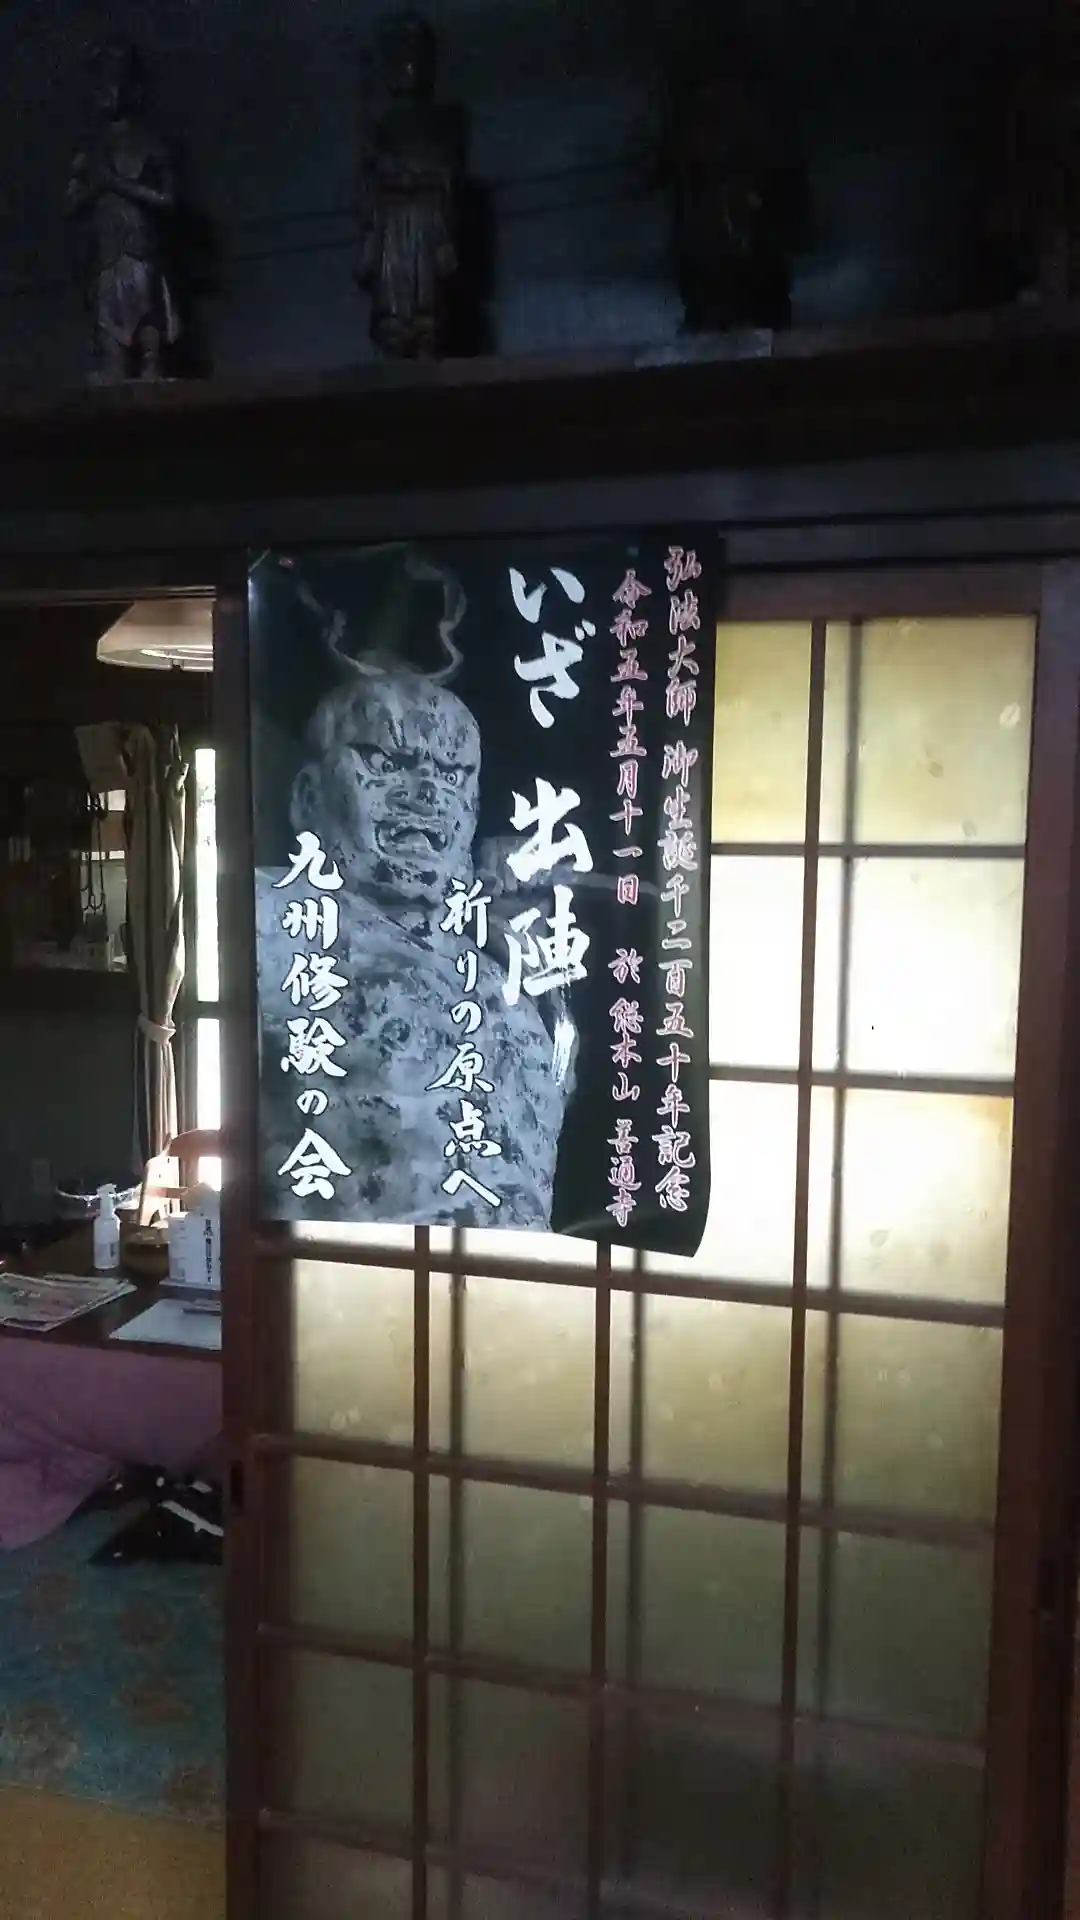 弘法大師 御生誕千二百五十年記念
令和五年五月十一日 於 総本山 善通寺
いざ 出陣
祈りの原点へ
九州修験の会